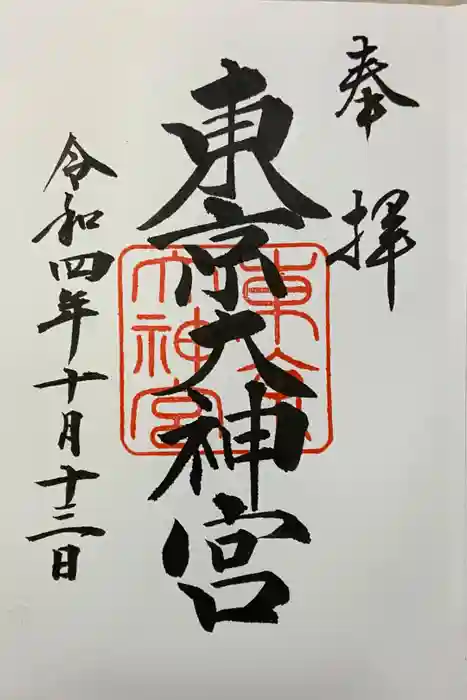 奉拝
東京大神宮
東京大神宮
令和四年十月十三日